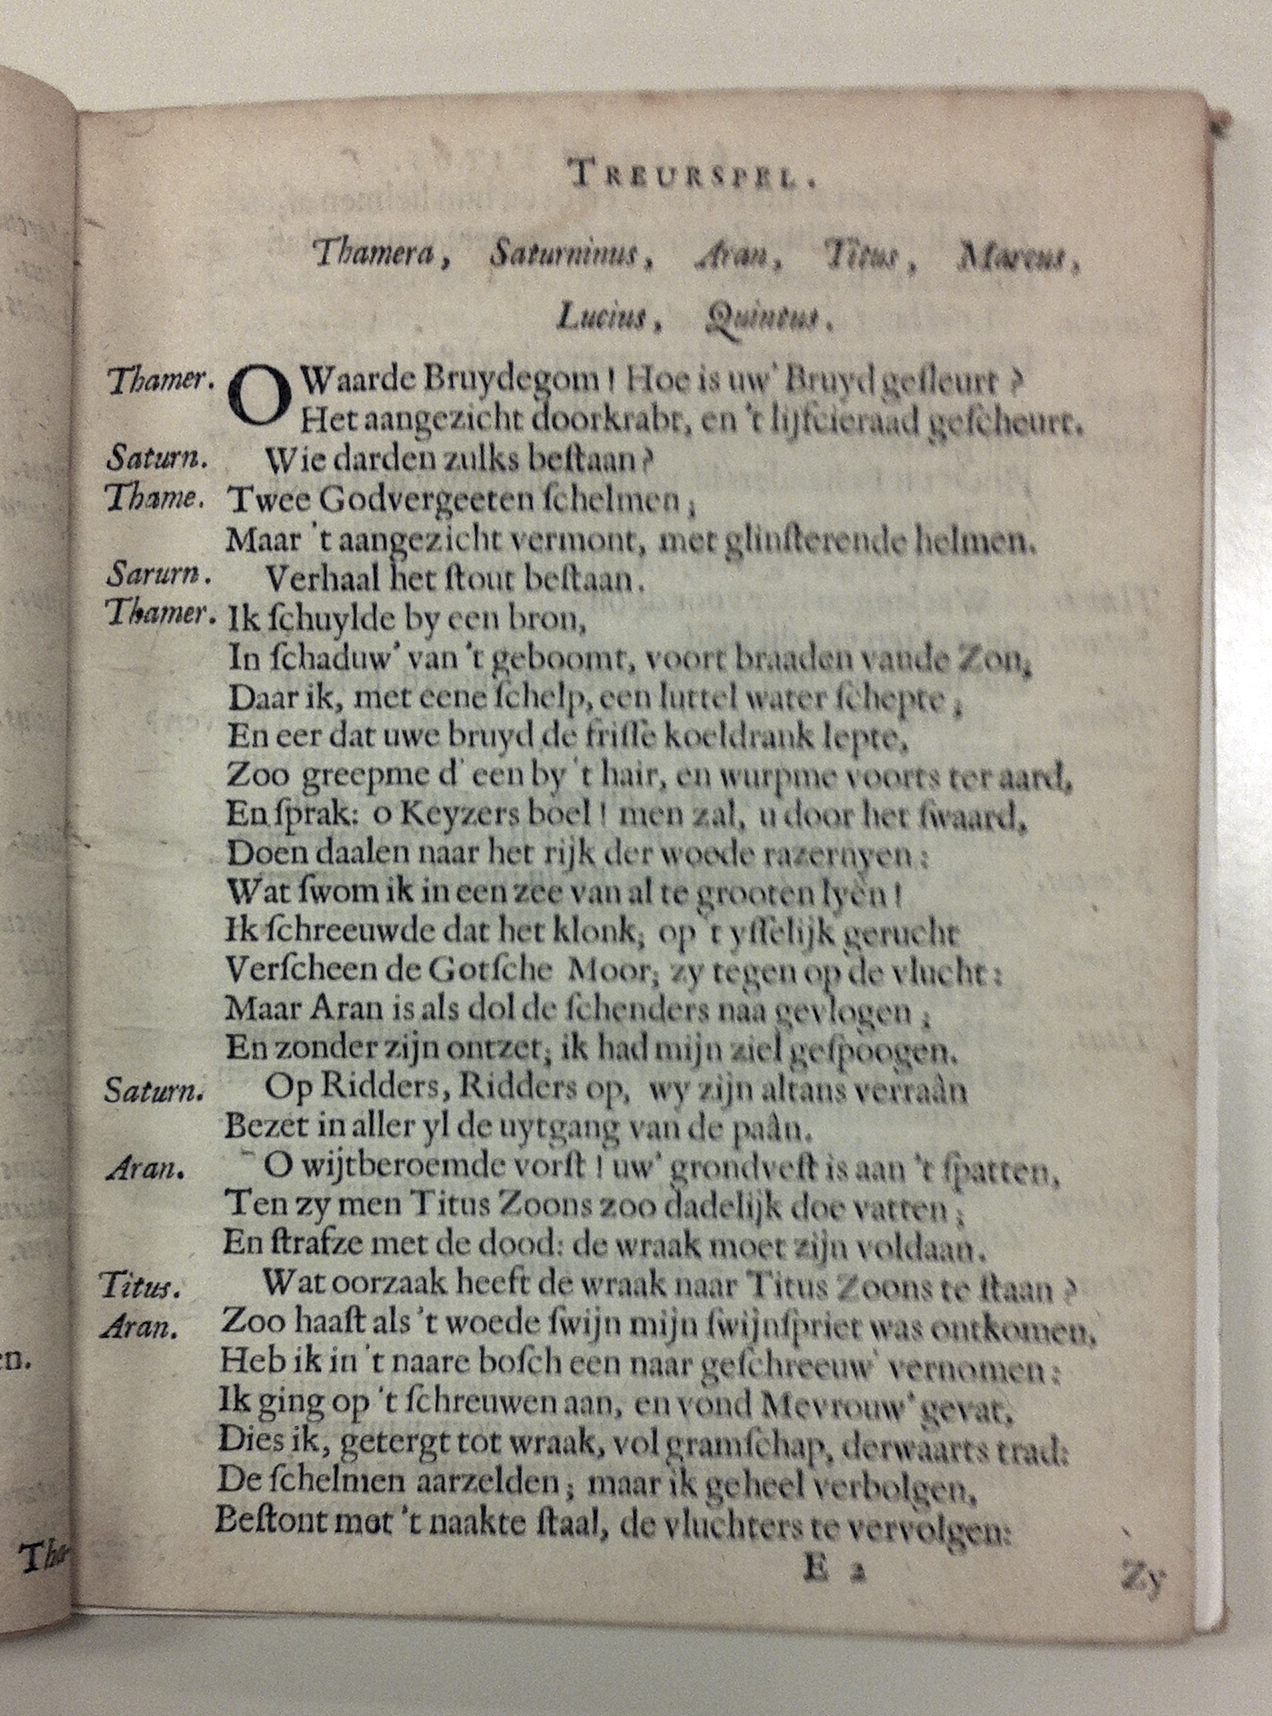 TREURSPEL.
Thamera, Saturninus, Aran, Titus, Marcus,
Lucius, Quintus.
Thamer. O Waarde Bruydegom! Hoe is uw' Bruyd geſleurt?
Het aangezicht doorkrabt, en 't lijfcieraad geſcheurt.
Saturn. Wie darden zulks beſtaan?
Thame. Twee Godvergeeten ſchelmen;
Maar 't aangezicht vermont, met glinſterende helmen.
Sarurn. Verhaal het ſtout beſtaan.
Thamer. Ik ſchuylde by een bron,
In ſchaduw' van 't geboomt, voort braaden vande Zon,
Daar ik, met eene ſchelp, een luttel water ſchepte;
En eer dat uwe bruyd de friſſe koeldrank lepte,
Zoo greepme d' een by 't hair, en wurpme voorts ter aard,
En ſprak: o Keyzers boel! men zal, u door het ſwaard,
Doen daalen naar het rijk der woede razernyen:
Wat ſwom ik in een zee van al te grooten lyèn!
Ik ſchreeuwde dat het klonk; op 't yſſelijk gerucht
Verſcheen de Gotſche Moor; zy tegen op de vlucht:
Maar Aran is als dol de ſchenders naa gevlogen;
En zonder zijn ontzet; ik had mijn ziel geſpoogen.
Saturn. Op Ridders, Ridders op, wy zijn altans verraân
Bezet in aller yl de uytgang van de paân.
Aran. O wijtberoemde vorſt! uw' grondveſt is aan 't ſpatten,
Ten zy men Titus Zoons zoo dadelijk doe vatten;
En ſtrafze met de dood: de wraak moet zijn voldaan.
Titus. Wat oorzaak heeft de wraak naar Titus Zoons te ſtaan?
Aran. Zoo haaſt als 't woede ſwijn mijn ſwijnſpriet was ontkomen,
Heb ik in 't naare boſch een naar geſchreeuw' vernomen:
Ik ging op 't ſchreuwen aan, en vond Mevrouw' gevat,
Dies ik, getergt tot wraak, vol gramſchap, derwaarts trad:
De ſchelmen aarzelden; maar ik geheel verbolgen,
Beſtont mot 't naakte ſtaal, de vluchters te vervolgen:
E 2 Zy
en.
Tha-